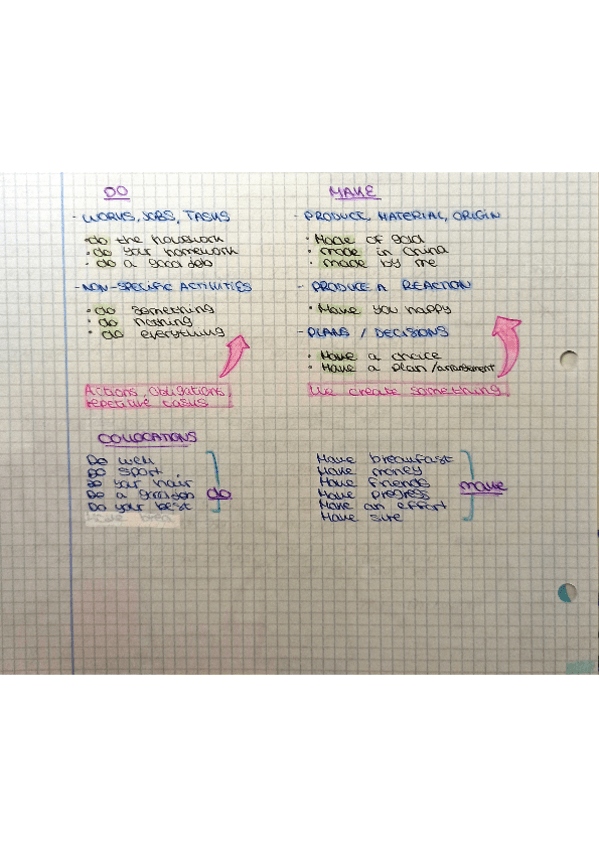 DO
- WORKS, JOBS, TASKS
• do the housework
• do your homework
• do a good job
- NON-SPECIFIC ACTIVITIES
• do something
• do nothing
• do everything
Actions, obligations,
repetitive tasks
MAKE
- PRODUCE, MATERIAL, ORIGIN
• Made of gold
• made in China
• made by me
- PRODUCE A REACTION
• Make you happy
- PLANS / DECISIONS
• Make a choice
• Make a plan/arrangement
We create something
COLLOCATIONS
Do well
Do sport
Do your hair
Do a good job
Do your best
do
Make breakfast
Make money
Make friends
Make progress
Make an effort
Make sure
make